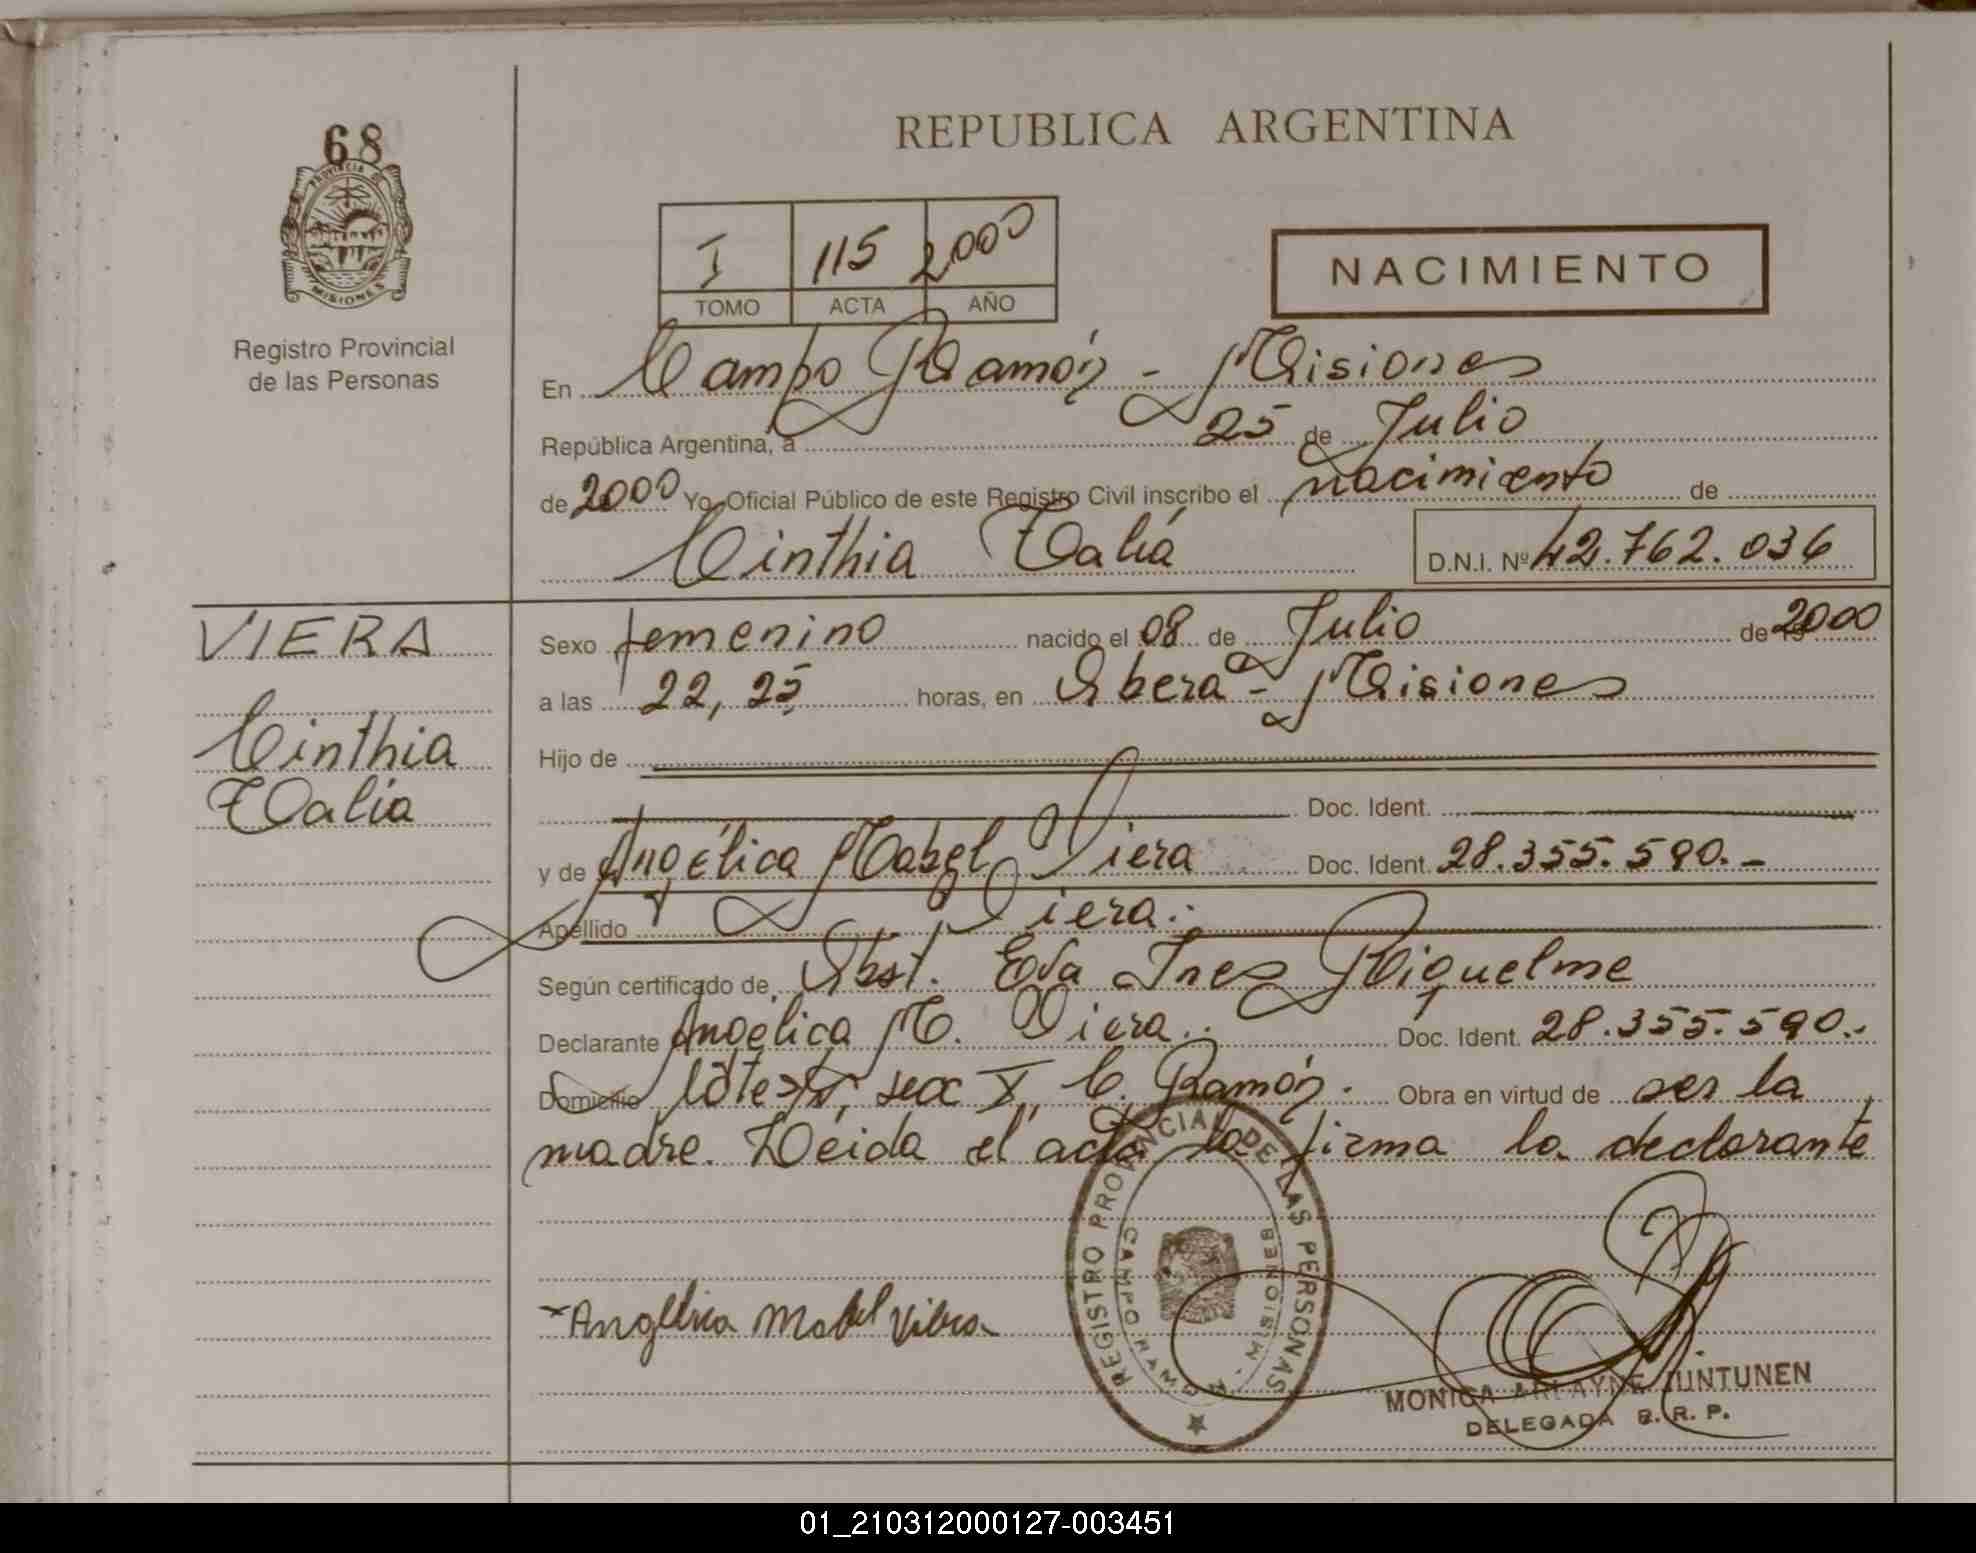 68
PROVINCIA DE
MISIONES
Registro Provincial
de las Personas
REPUBLICA ARGENTINA
I 115 2000
TOMO ACTA AÑO
NACIMIENTO
En Campo Ramón - Misiones
República Argentina, a 25 de Julio
de 2000 Yo, Oficial Público de este Registro Civil inscribo el nacimiento de
Cinthia Talía D.N.I. Nº 42.762.036
VIERA
Cinthia
Talía
Sexo femenino nacido el 08 de Julio de 2000
a las 22,25 horas, en Oberá - Misiones
Hijo de
Doc. Ident.
y de Angélica Mabel Viera Doc. Ident. 28.355.590.-
Apellido Viera.-
Según certificado de Obst. Eva Ines Riquelme
Declarante Angélica M. Viera.- Doc. Ident. 28.355.590.-
Domicilio lote secc X, C. Ramón. Obra en virtud de ser la
madre. Leida el acta la firma la declarante
Angelica Mabel Viera
REGISTRO PROVINCIAL DE LAS PERSONAS
CAMPO RAMON - MISIONES
MONICA ARLAYNE JUNTUNEN
DELEGADA R. R. P.
01_210312000127-003451